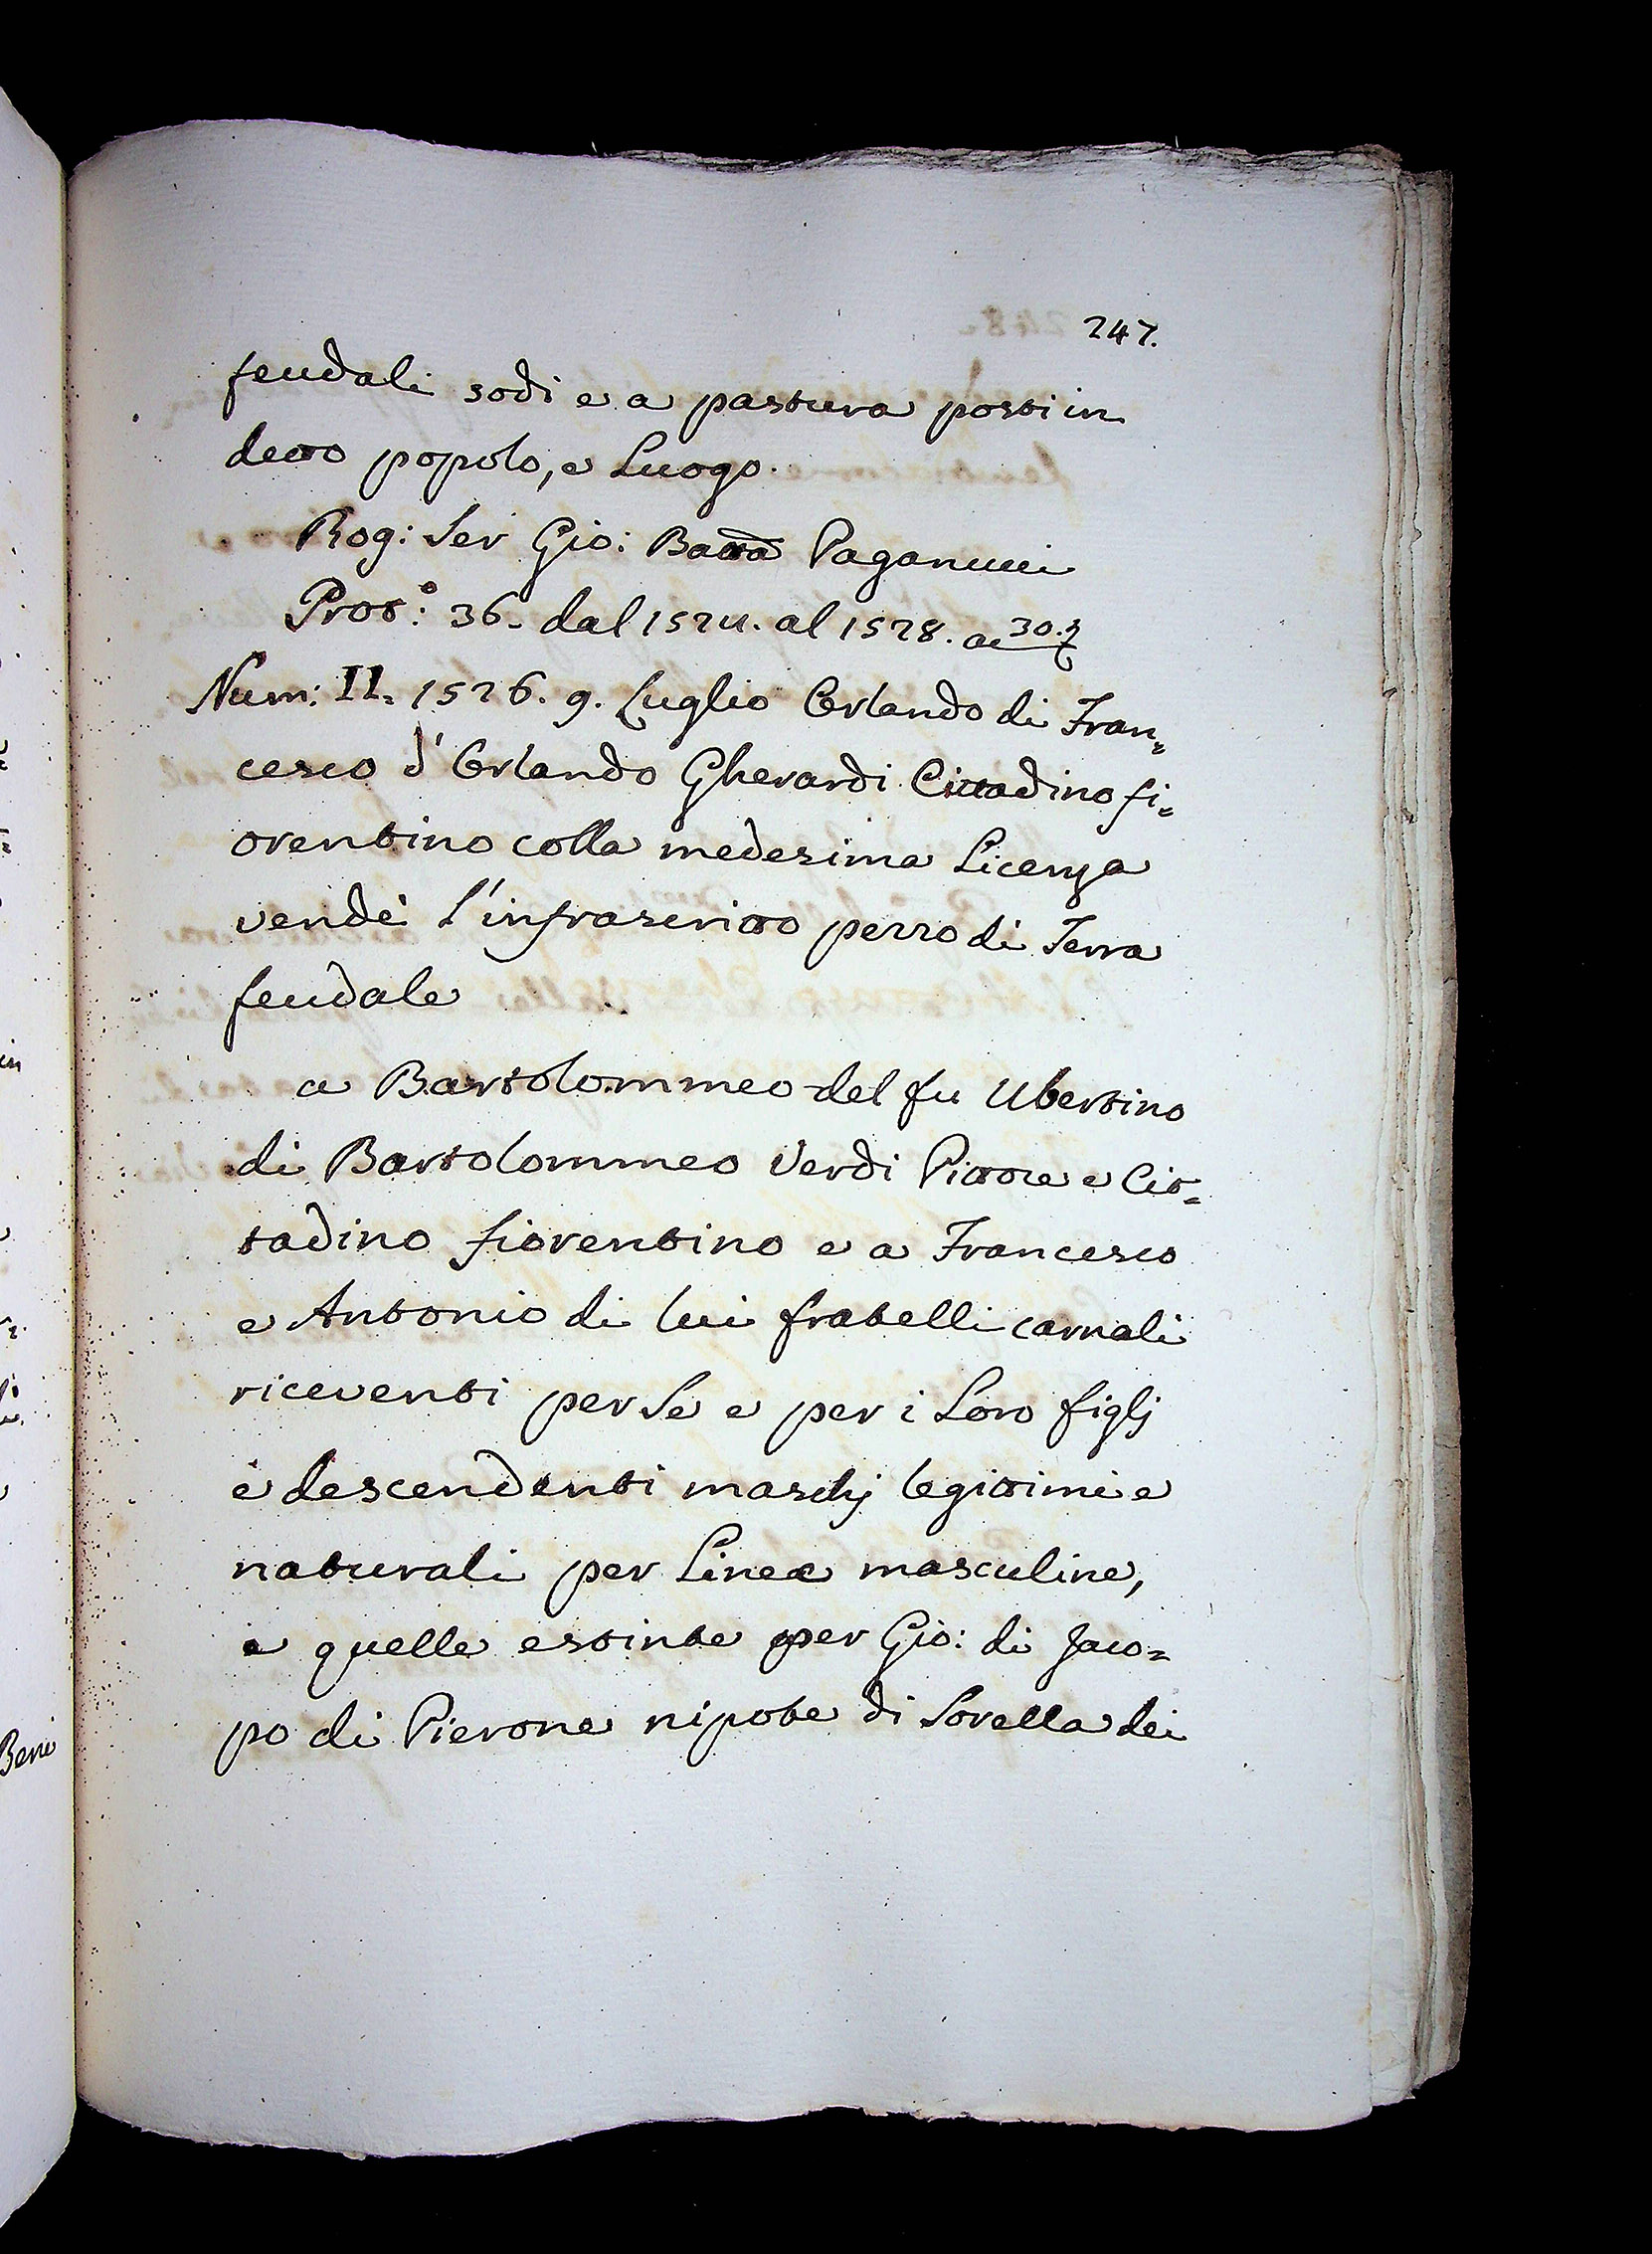 247.
feudali sodi e a pastura posti in
detto popolo, e Luogo.
Rog: Ser Gio: Batta Paganucci
Prot:° 36. dal 1524. al 1528. a 30.
Num: II. 1526. 9. Luglio Orlando di Fran=
cesco d'Orlando Gherardi Cittadino fi=
orentino colla medesima Licenza
vendè l'infrascritto pezzo di Terra
feudale
a Bartolommeo del fu Ubertino
di Bartolommeo Verdi Pittore e Cit=
tadino fiorentino e a Francesco
e Antonio di lui fratelli carnali
riceventi per Se e per i Loro figlj
e descendenti maschj legittimi e
naturali per Linea masculine,
e quelle estinte per Gio: di Jaco=
po di Pierone nipote di Sorella dei
in
Beni